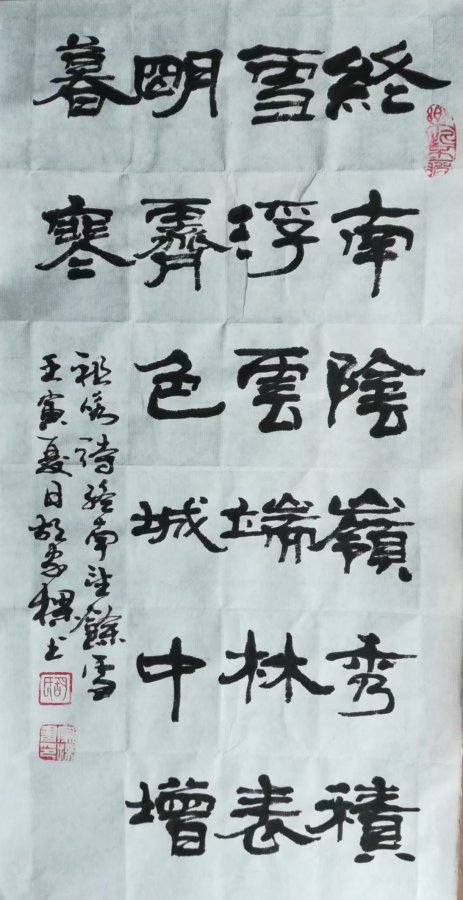 終南陰嶺秀積
雪浮雲端林表
明霽色城中增
暮寒
祖詠詩終南望餘雪
壬寅夏日胡家书